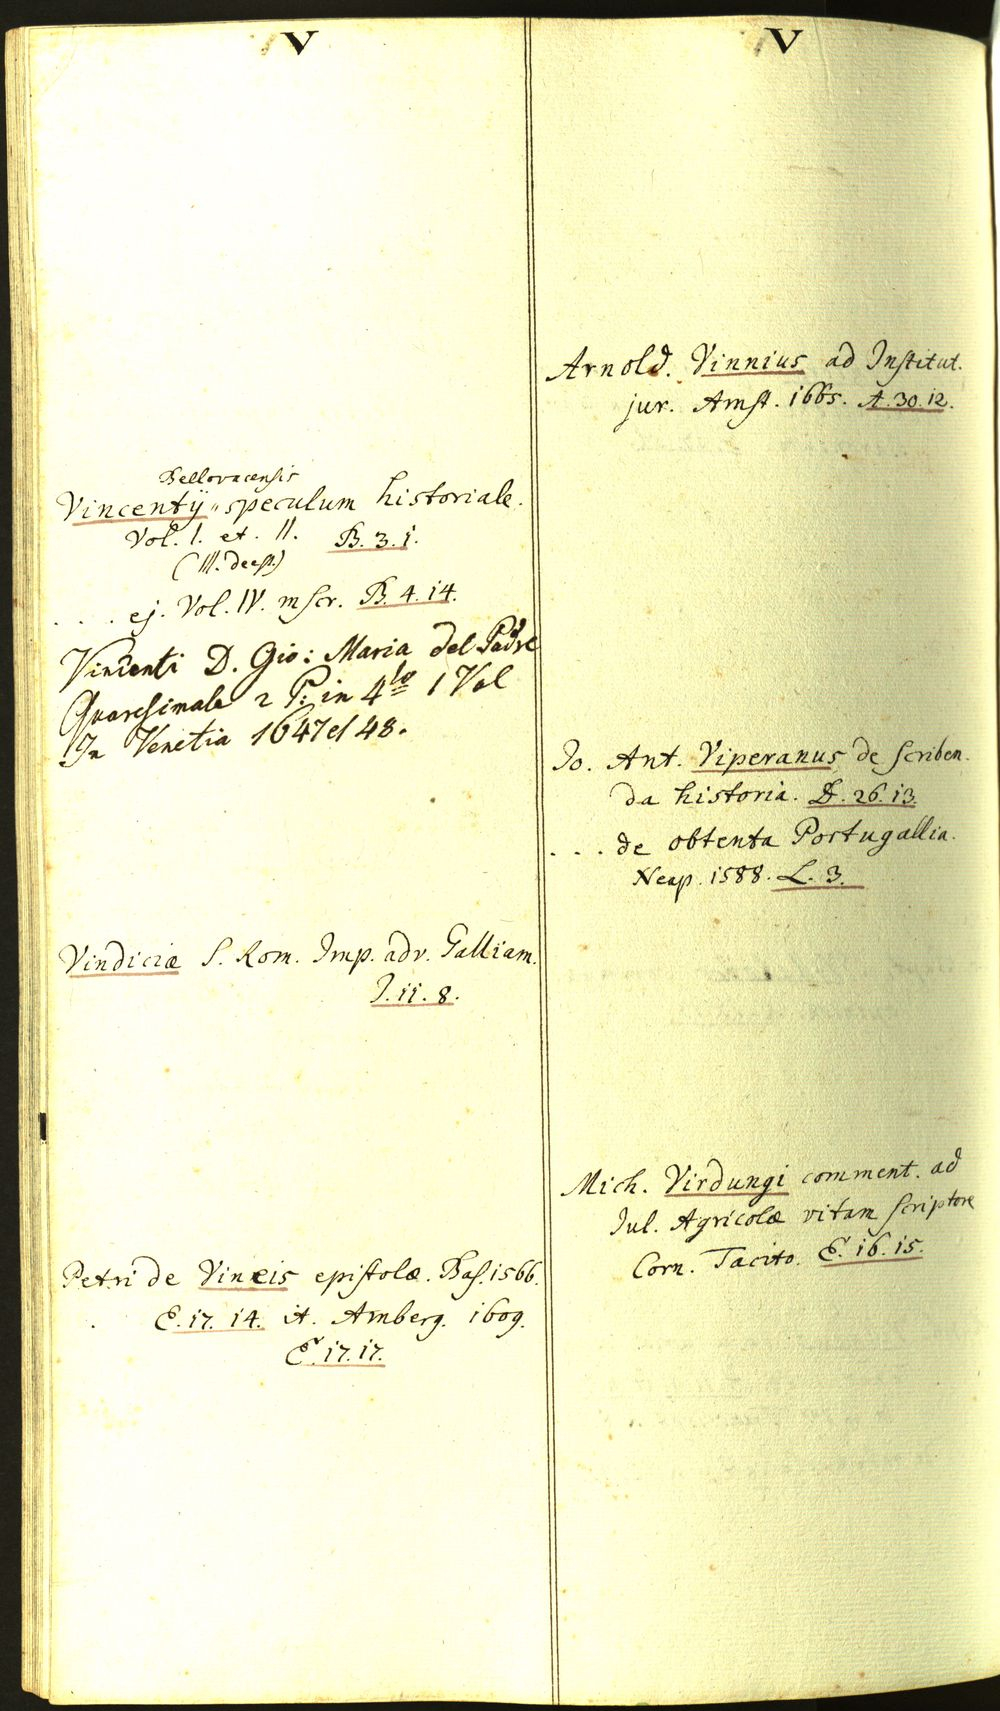 V
Bellovacensis
Vincentij " speculum historiale.
Vol. I. et. II. B. 3. 1.
(III. deest.)
. . . . ej. Vol. IV. mscr. B. 4. 14.
Vincenti D. Gio: Maria del Padre
Quaresimale 2 P: in 4to 1 Vol
In Venetia 1647 et 48.
Vindiciæ S. Rom. Imp. adv. Galliam.
J. 11. 8.
Petri de Vineis epistolæ. Bas. 1566.
E. 17. 14. it. Amberg. 1609.
E. 17. 17.
V
Arnold. Vinnius ad Institut.
jur. Amst. 1665. A. 30. 12.
Jo. Ant. Viperanus de scriben
da historia. D. 26. 13.
. . . de obtenta Portugallia.
Neap. 1588. L. 3.
Mich. Virdungi comment. ad
Jul. Agricolæ vitam scriptore
Corn. Tacito. E. 16. 15.